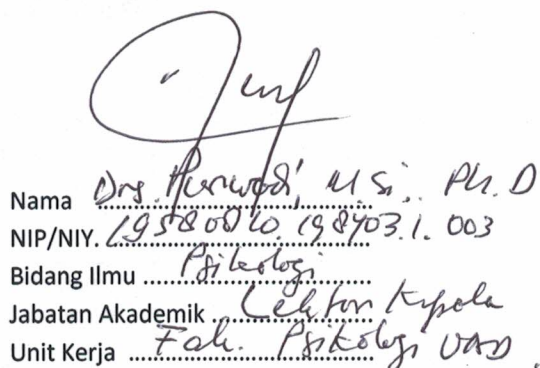 Nama Drs. Purwadi, M.Si., Ph.D
NIP/NIY. 19580810.198403.1.003
Bidang Ilmu Psikologi
Jabatan Akademik Lektor Kepala
Unit Kerja Fak. Psikologi UAD